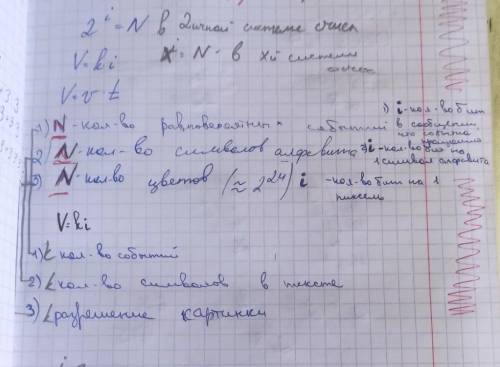 2^i = N в 2ичной системе счисл
V=ki X^i = N - в Xй системе
V=v·t
1) i - кол-во бит в сообщении, что событие произошло
1) N - кол-во равновероятных событий
2) N - кол-во символов алфавита 2) i - кол-во бит на 1 символ алфавита
3) N - кол-во цветов (≈ 2^24) i - кол-во бит на 1 пиксель
V=ki
1) k кол-во событий
2) k кол-во символов в тексте
3) k разрешение картинки